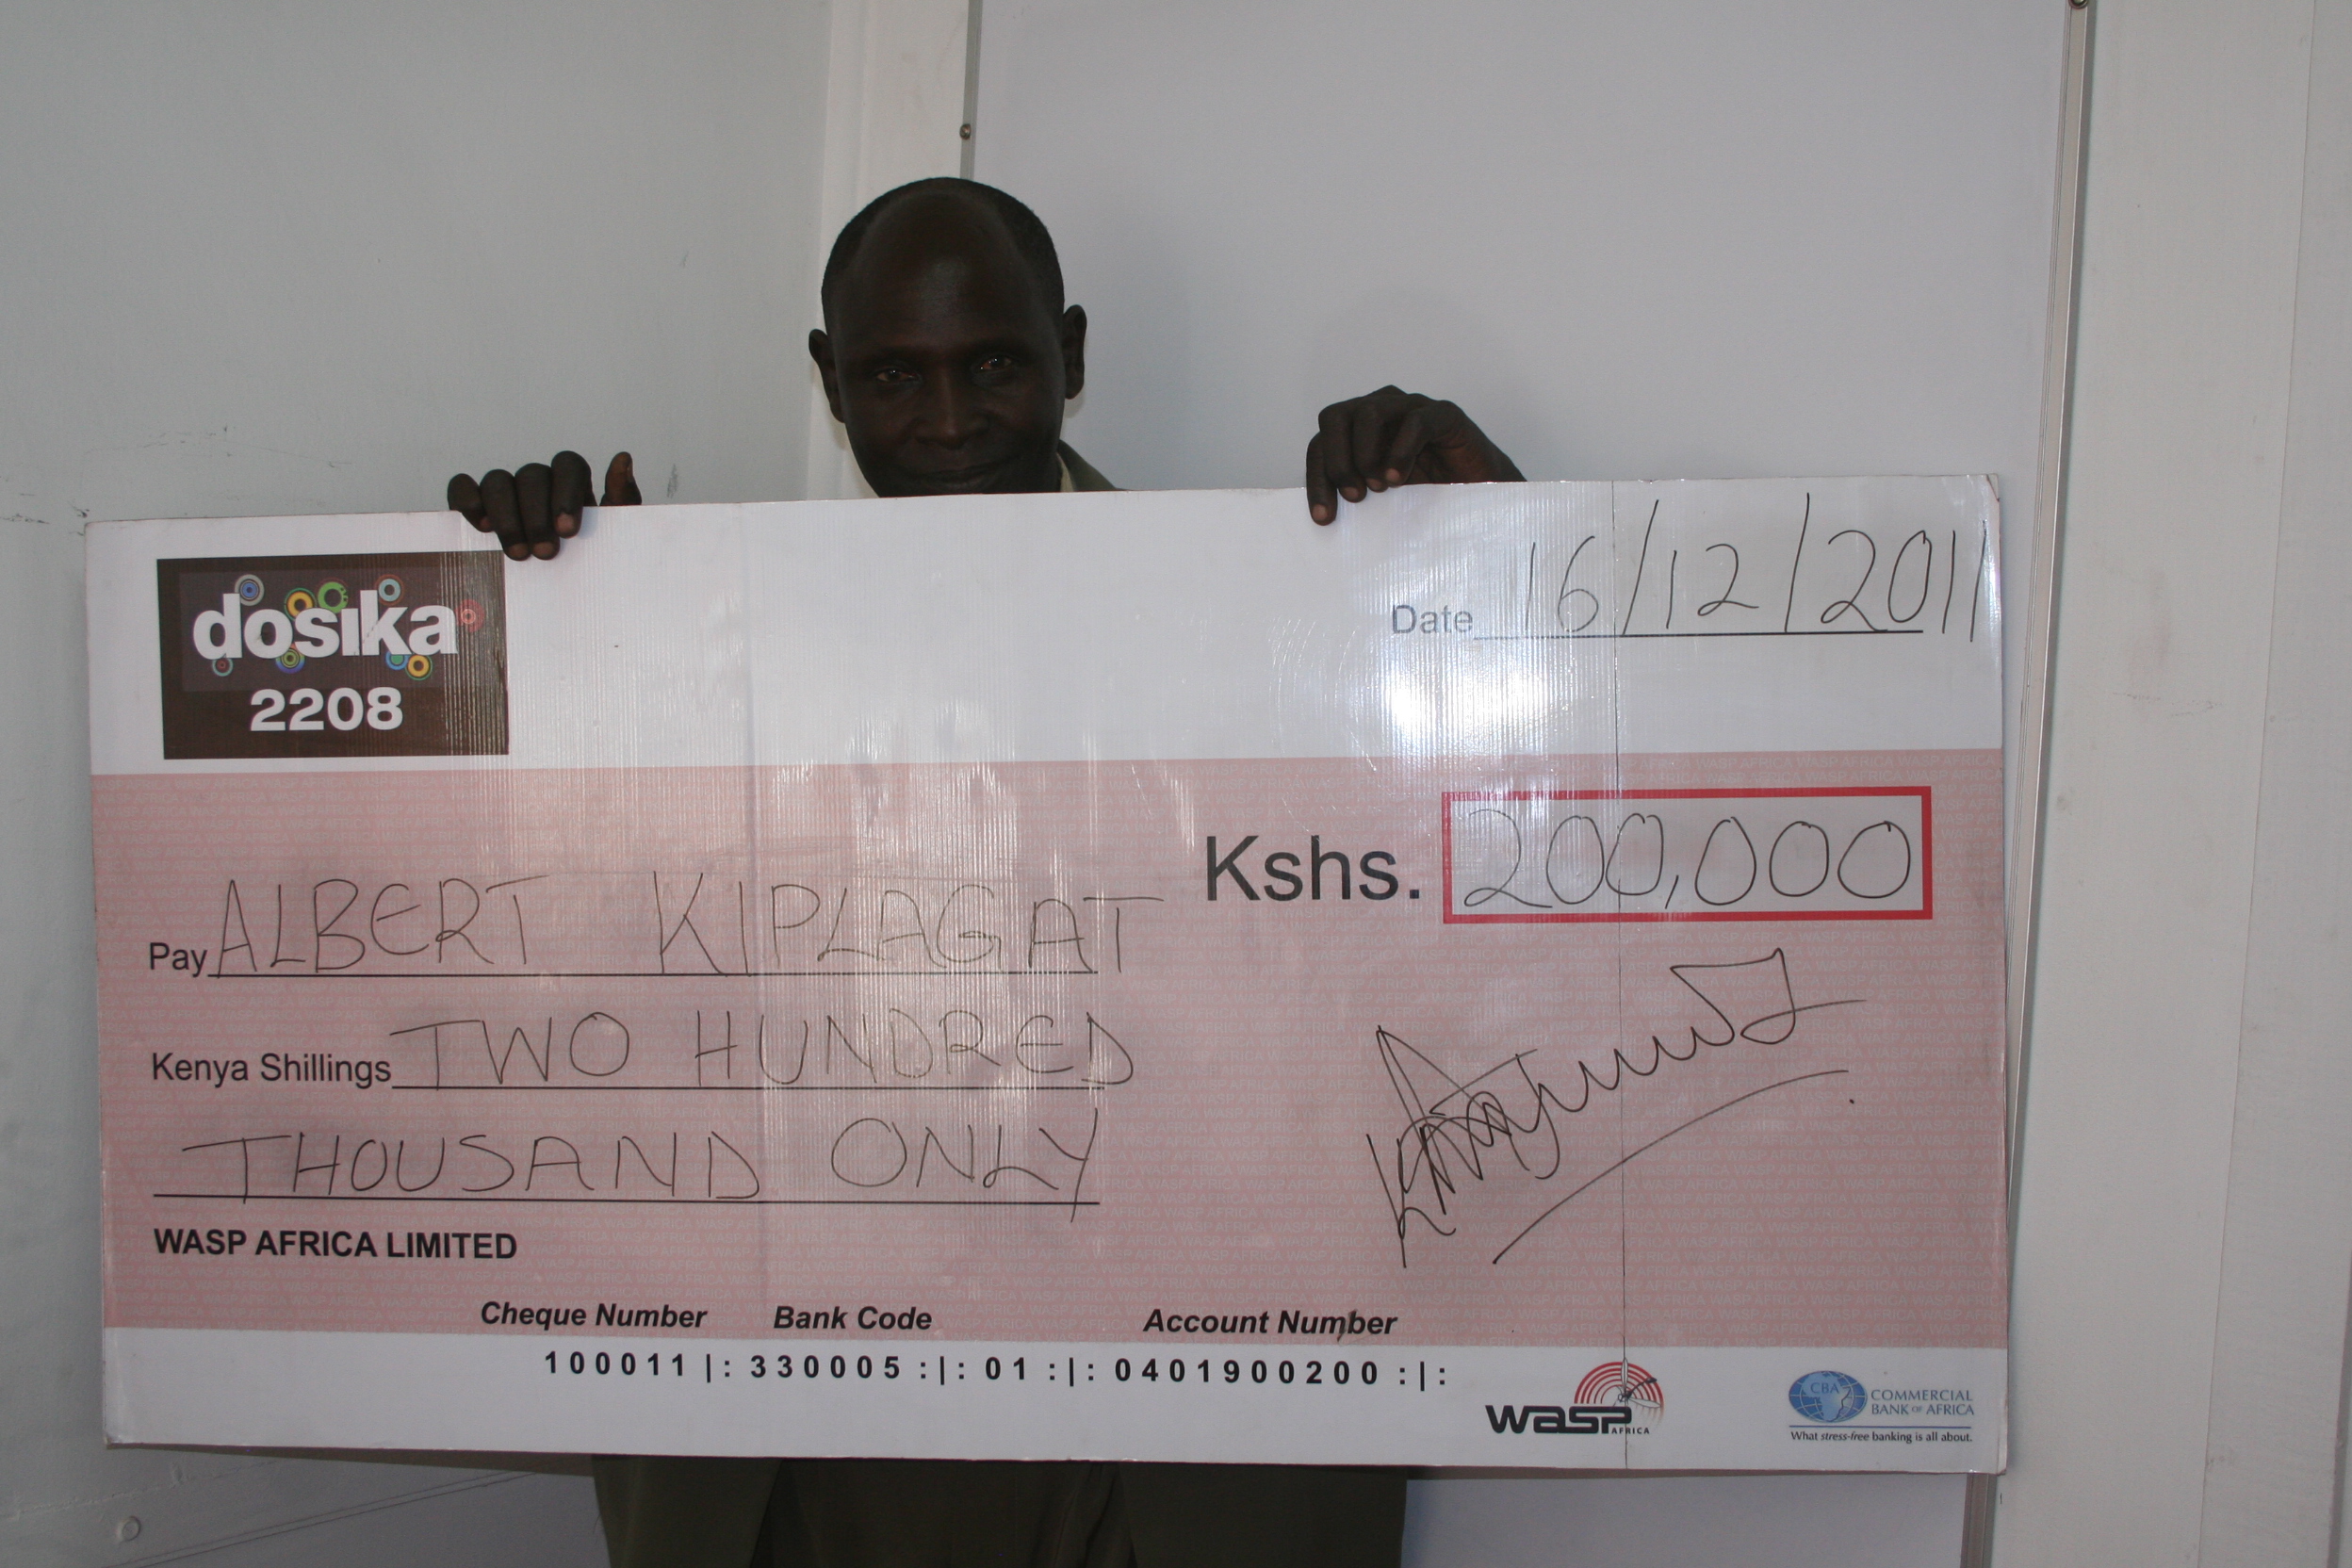 dosika
2208
Date 16/12/2011
Kshs. 200,000
Pay ALBERT KIPLAGAT
Kenya Shillings TWO HUNDRED
THOUSAND ONLY
WASP AFRICA LIMITED
Cheque Number Bank Code Account Number
100011 |: 330005 :|: 01 :|: 0401900200 :|:
wasp
AFRICA
CBA
COMMERCIAL
BANK OF AFRICA
What stress-free banking is all about.